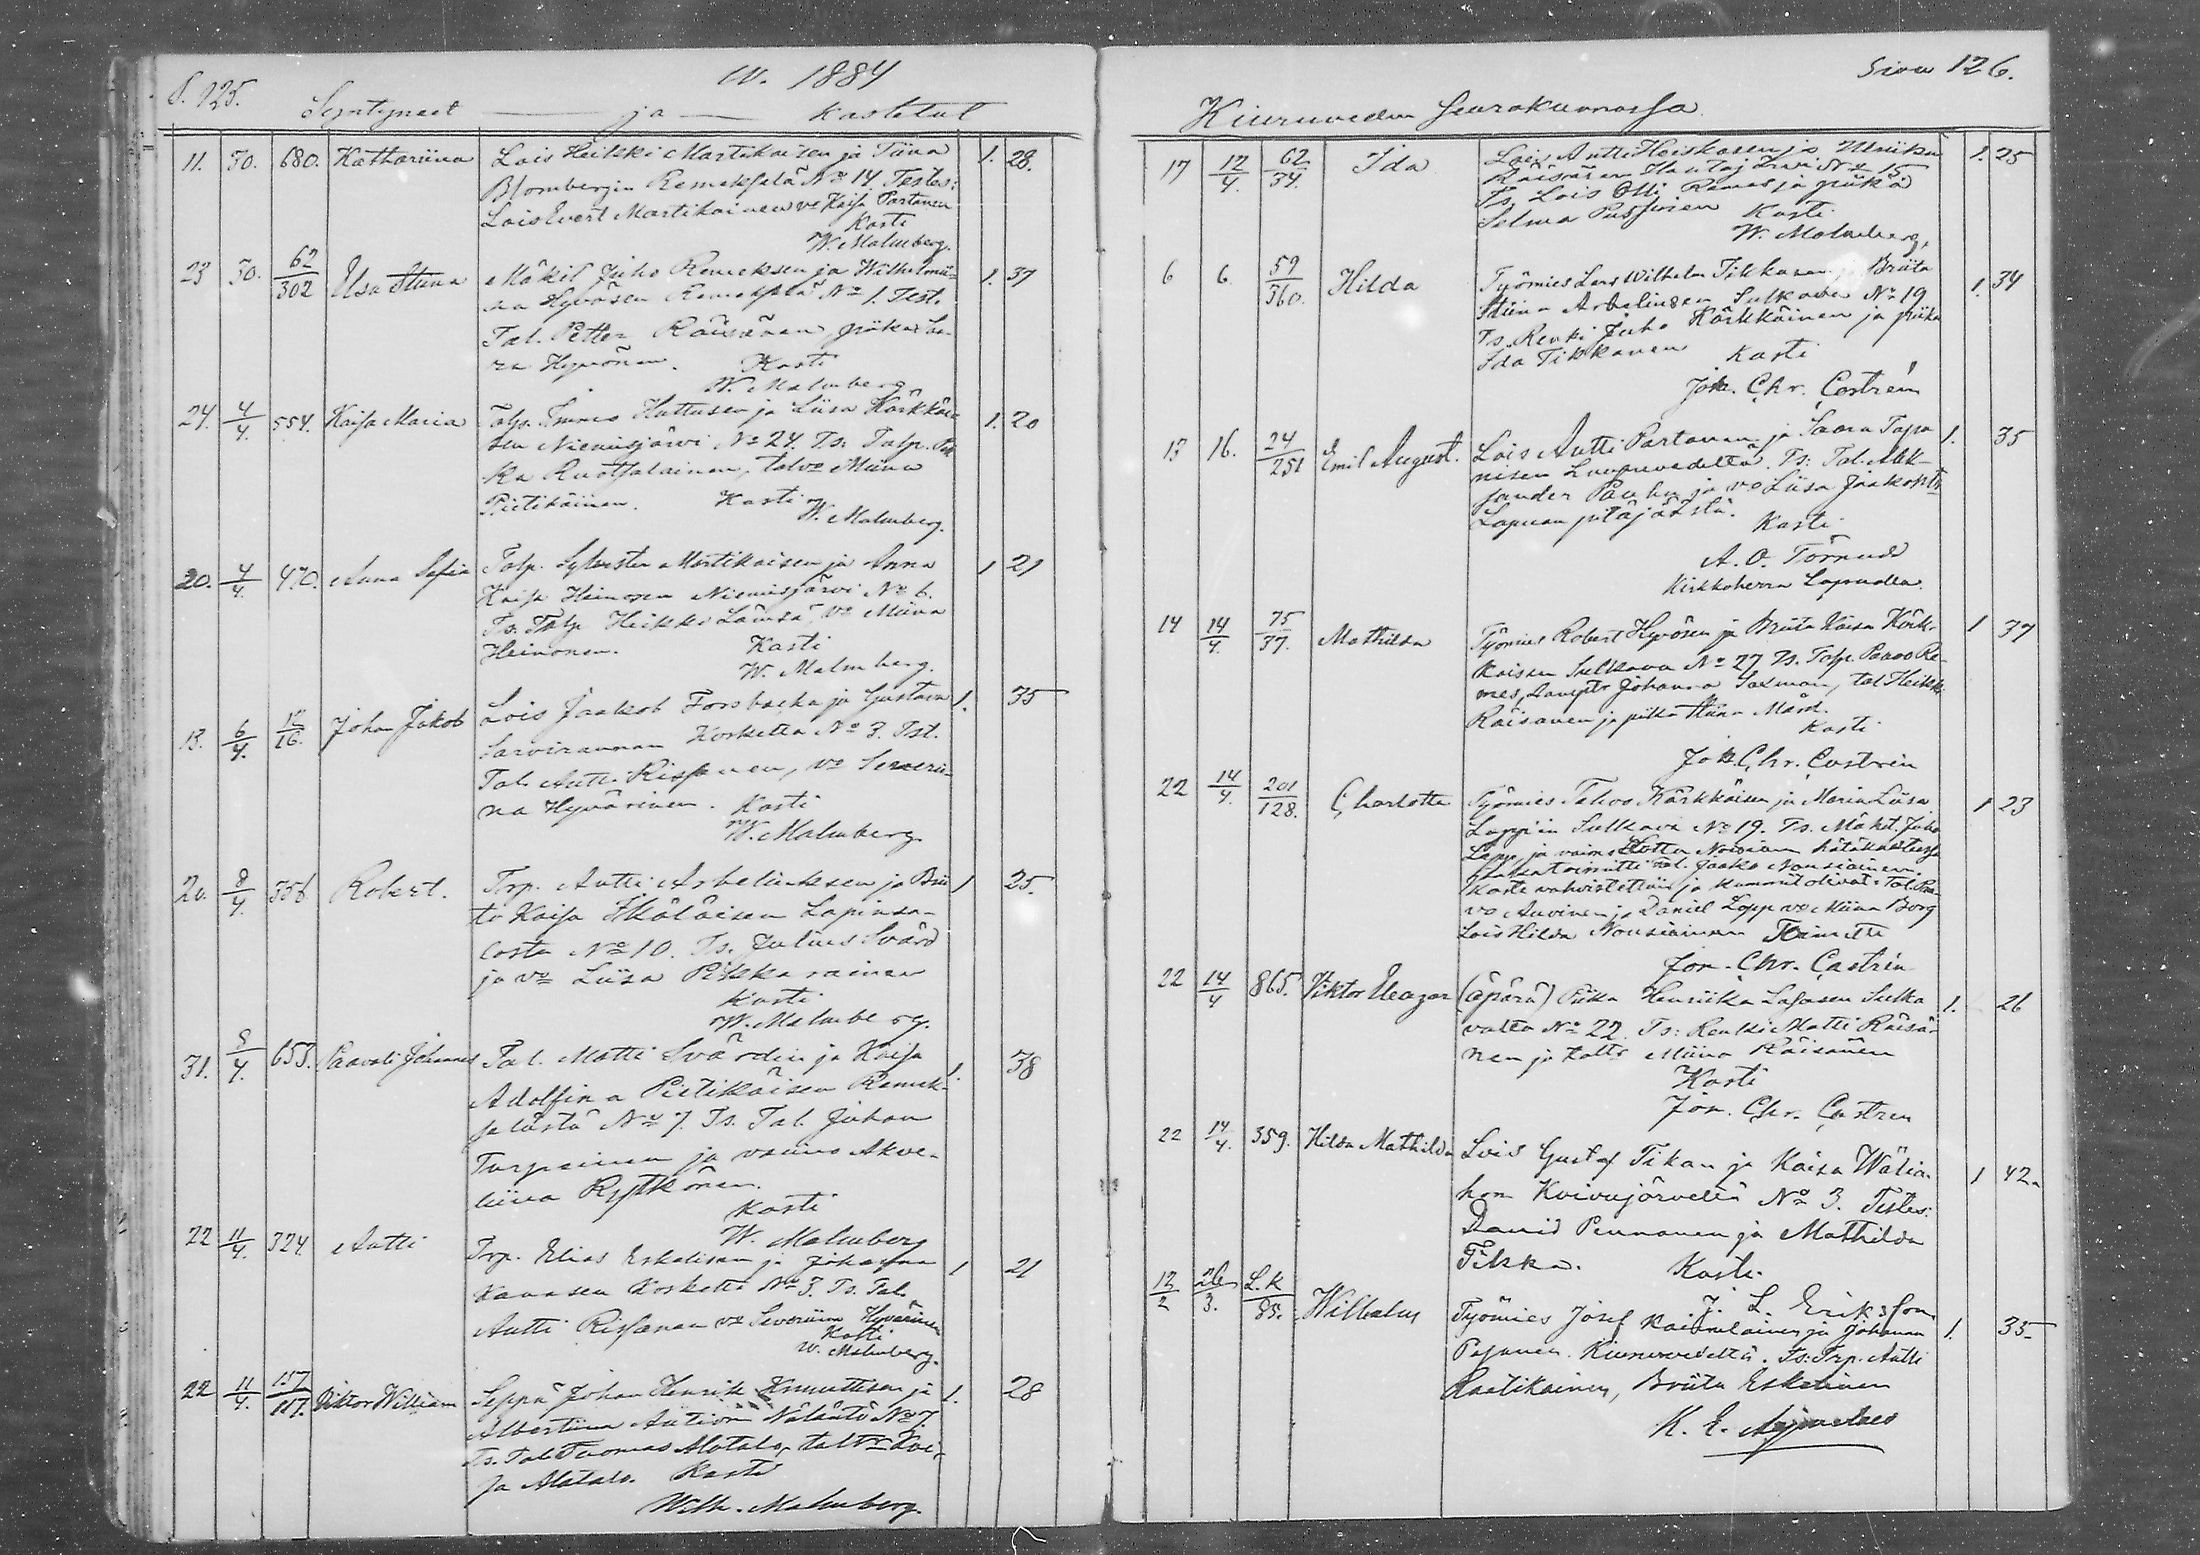 S. 125.
W. 1884
Syntyneet — ja — kastetut
11. 30. 680. Kathariina Lois Heikki Martikaisen ja Tiina 1. 28.
Blombergin Remekselä No 14. Testes:
Lois Evert Martikainen vo Kaisa Partanen
Kasti
W. Malmberg.
23 30. 62/302 Elsa Stiina Mäkit. Juho Remeksen ja Wilhelmii- 1. 37
na Hyvösen Remekselä No 1. Test.
Tal. Petter Räisänen, piika Sa-
ra Hyvönen. Kasti
W. Malmberg
24. 4/4. 554. Kaisa Maria Talp. Huttusen ja Liisa Kärkkäi- 1. 20
sen Niemisjärvi No 24. Ts: Talp.
ka Ruotsalainen, talvo Miina
Pietikäinen. Kasti
W. Malmberg.
20. 4/4. 470. Anna Sofia Talp. Sylvester Martikaisen ja Anna 1 21
Kaisa Heinosen Niemisjärvi No 6.
Ts. Talp Heikki Lämsä, vo Miina
Heinonen. Kasti
W. Malmberg.
13. 6/4. /16. Johan Jakob Lois Jaakob Forsbacka ja Gustava 1. 35
Sarvirannan Koskelta No 3. Tst.
Tal. Antti Rissanen, vo Severii-
na Hyvärinen. Kasti
W. Malmberg.
20. 8/4. 356. Robert. Trp. Antti Arbelinksen ja Brii 1 25.
ta Kaisa Ikäläisen Lapinsa-
losta No 10. Ts. Julius Svärd
ja vo Liisa Pikkarainen
Kasti
W. Malmberg.
31. 8/4. 653. Paavali Johannes Tal. Matti Svärdin ja Kaisa 1. 38
Adolfina Pietikäisen Remek-
selästä No 7. Ts. Tal. Johan
Turpeinen ja vaimo Akve-
liina Rytkönen.
Kasti
W. Malmberg
22 11/4. 324 Antti Trp. Elias Eskelisen ja Johanna 1 21
Kanasen Koskelta No 3. Ts. Tal.
Antti Rissanen vo Severiina Hyvärinen
Kasti
W. Malmberg.
22 11/4. 157/117. Viktor William Seppä Johan Henrik Knuuttisen ja 1. 28
Albertiina Aution Näläntö No 7.
Ts. Tal. Tuomas Alatalo, taltr Lovi-
sa Alatalo. Kasti
Wilh. Malmberg.
Sivu 126.
Kiuruveden Seurakunnassa
17 12/4. 62/34. Ida Lois Antti Heiskasen ja Ulriika 1. 25
Räisäsen Hautajärvi No 15
Ts. Lois Olli Remes ja piika
Selma Pussinen Kasti
W. Malmberg.
6 6. 59/360. Hilda Työmies Lars Wilhelm Tikkasen ja Briita 1. 34
Stiina Arbelinksen Sulkava No 19
Ts. Renki Juho Kärkkäinen ja piika
Ida Tikkanen Kasti
Joh. Chr. Castrén
13 16. 24/251 Emil August. Lois Antti Partanen ja Saara Tapa 1. 35
nisen Luupuvedeltä. Ts: Tal. Alek-
sander ja vo Liisa
Lapuan pitäjästä. Kasti
A. O. Törnudd
Kirkkoherra Lapualla.
14 14/4. 75/37. Mathilda Työmies Robert Hyvösen ja Briita Kaisa Kärk- 1 37
käisen Sulkava No 27 Ts. Talp. Paavo Re-
mes, Johanna Saxman, tal Heikki
Räisänen ja piika Stiina Mård.
Kasti
Joh. Chr. Castrén
22 14/4. 201/128. Charlotta Työmies Tahvo Kärkkäisen ja Maria Liisa 1 23
Loppin Sulkava No 19. Ts. Mäkit. Juho
Lapp ja vaimo Lotta Nousiain hätäkasteessa
toimitti tal. Jaako Nousiainen.
Kaste vahvistettiin ja kummit olivat: Tal. Paa-
vo Auvinen ja Daniel Lopp vo Miina Borg
Lois Hilda Nousiainen Toimitti
Joh. Chr. Castrén
22 14/4 865. Viktor Eleazar (äpärä) Piika Henriika Lapasen Sulka 1. 26
valta No 22. Ts: Renki Matti Räisä-
nen ja taltr Miina Räisänen
Kasti
Joh. Chr. Castren
22 14/4. 359. Hilda Mathilda Lois Gustaf Tikan ja Kaisa Wälia- 1 42.
hon Koivujärveltä No 3. Testes:
David Pennanen ja Mathilda
Tikka. Kasti
J. L. Eriksson
12/2 26/3. L.k/85. Wilhelm Työmies Josef Kainulainen ja Johanna 1. 35
Pajanen Kiuruvedeltä. Ts: Trp. Antti
Raatikainen, Briita Eskelinen
K. E.